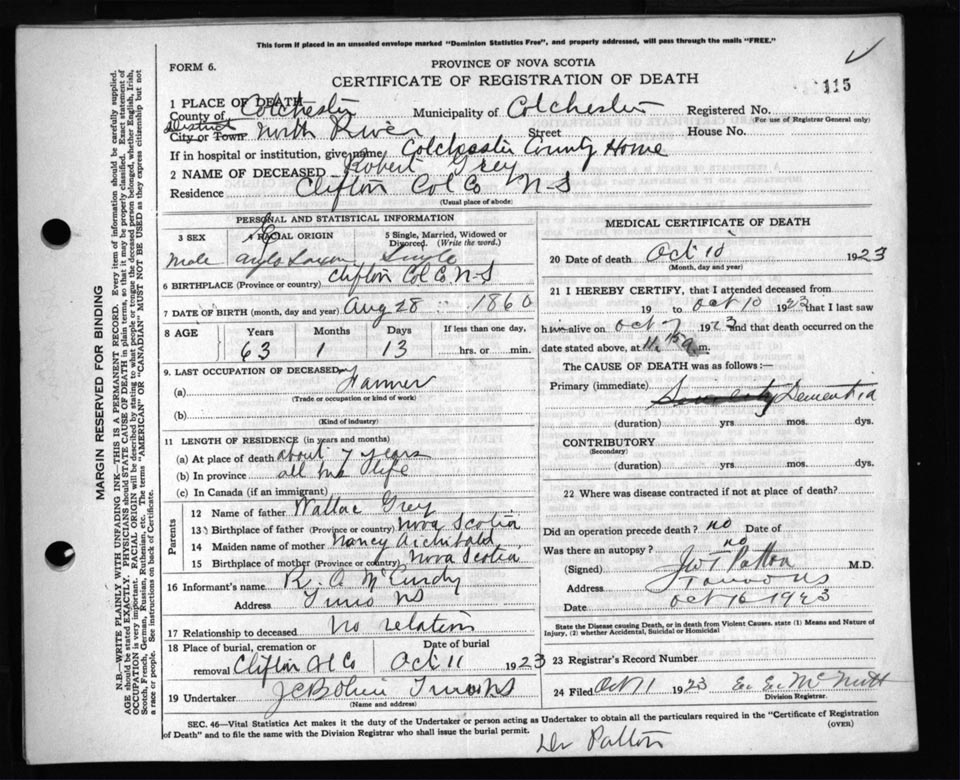 This form if placed in an unsealed envelope marked "Dominion Statistics Free", and properly addressed, will pass through the mails "FREE."
FORM 6.
PROVINCE OF NOVA SCOTIA
CERTIFICATE OF REGISTRATION OF DEATH
115
1 PLACE OF DEATH
County of Colchester Municipality of Colchester Registered No.
(For use of Registrar General only)
District
City or Town North River Street House No.
If in hospital or institution, give name Colchester County Home
2 NAME OF DECEASED Robert Grey
Residence Clifton Col Co N-S
(Usual place of abode)
PERSONAL AND STATISTICAL INFORMATION
3 SEX 4 RACIAL ORIGIN 5 Single, Married, Widowed or Divorced. (Write the word.)
Male Anglo Saxon Single
6 BIRTHPLACE (Province or country) Clifton Col Co. N-S
7 DATE OF BIRTH (month, day and year) Aug 28 1860
8 AGE Years Months Days If less than one day,
63 1 13 hrs. or min.
9. LAST OCCUPATION OF DECEASED
(a) Farmer
(Trade or occupation or kind of work)
(b)
(Kind of industry)
11 LENGTH OF RESIDENCE (in years and months)
(a) At place of death about 7 years
(b) In province all his life
(c) In Canada (if an immigrant)
Parents
12 Name of father Wallac Grey
13 Birthplace of father (Province or country) Nova Scotia
14 Maiden name of mother Nancy Archibald
15 Birthplace of mother (Province or country) Nova Scotia
16 Informant's name R. A McCurdy
Address Truro NS
17 Relationship to deceased no relation
18 Place of burial, cremation or removal Clifton Col Co
Date of burial Oct 11 1923
19 Undertaker Truro NS
(Name and address)
MEDICAL CERTIFICATE OF DEATH
20 Date of death Oct 10 1923
(Month, day and year)
21 I HEREBY CERTIFY, that I attended deceased from
19 to Oct 10 1923 that I last saw
him alive on Oct 7 1923 and that death occurred on the
date stated above, at 11.15 a.m.
The CAUSE OF DEATH was as follows:—
Primary (immediate) Dementia
(duration) yrs mos. dys.
CONTRIBUTORY
(Secondary)
(duration) yrs. mos. dys.
22 Where was disease contracted if not at place of death?
Did an operation precede death? no Date of
Was there an autopsy? no
(Signed) Patton M.D.
Address Truro NS
Date Oct 16 1923
State the Disease causing Death, or in death from Violent Causes, state (1) Means and Nature of
Injury, (2) whether Accidental, Suicidal or Homicidal
23 Registrar's Record Number
24 Filed Oct 11 1923 McNutt
Division Registrar.
SEC. 46—Vital Statistics Act makes it the duty of the Undertaker or person acting as Undertaker to obtain all the particulars required in the "Certificate of Registration
of Death" and to file the same with the Division Registrar who shall issue the burial permit.
(OVER)
Dr Patton
MARGIN RESERVED FOR BINDING
N.B.—WRITE PLAINLY WITH UNFADING INK—THIS IS A PERMANENT RECORD. Every item of information should be carefully supplied.
AGE should be stated EXACTLY. PHYSICIANS should STATE CAUSE OF DEATH in plain terms, so that it may be properly classified. Exact statement of
OCCUPATION is very important. RACIAL ORIGIN will be described by stating to what people or tongue the deceased person belonged, whether English, Irish,
Scotch, French, German, Russian, Ruthenian, etc. The terms "AMERICAN" or "CANADIAN" MUST NOT BE USED as they express citizenship but not
a race or people. See instructions on back of Certificate.